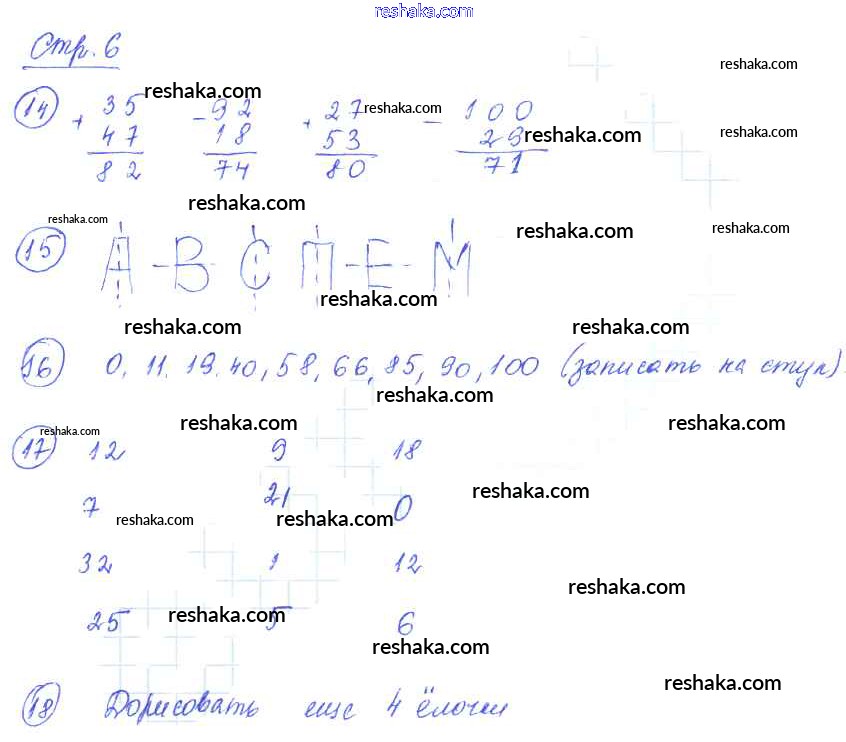 reshaka.com
Стр. 6
reshaka.com
14 + 35 - 92 + 27 - 100
47 18 53 29
82 74 80 71
reshaka.com reshaka.com reshaka.com reshaka.com
reshaka.com
reshaka.com reshaka.com reshaka.com
15 А - В С П - Е - М
reshaka.com
reshaka.com reshaka.com
16 0, 11, 19, 40, 58, 66, 85, 90, 100 (записать на ступ).
reshaka.com
reshaka.com reshaka.com reshaka.com
17 12 9 18
reshaka.com
7 21 0
reshaka.com reshaka.com
32 1 12
reshaka.com
reshaka.com
25 5 6
reshaka.com
reshaka.com
18 Дорисовать еще 4 ёлочки